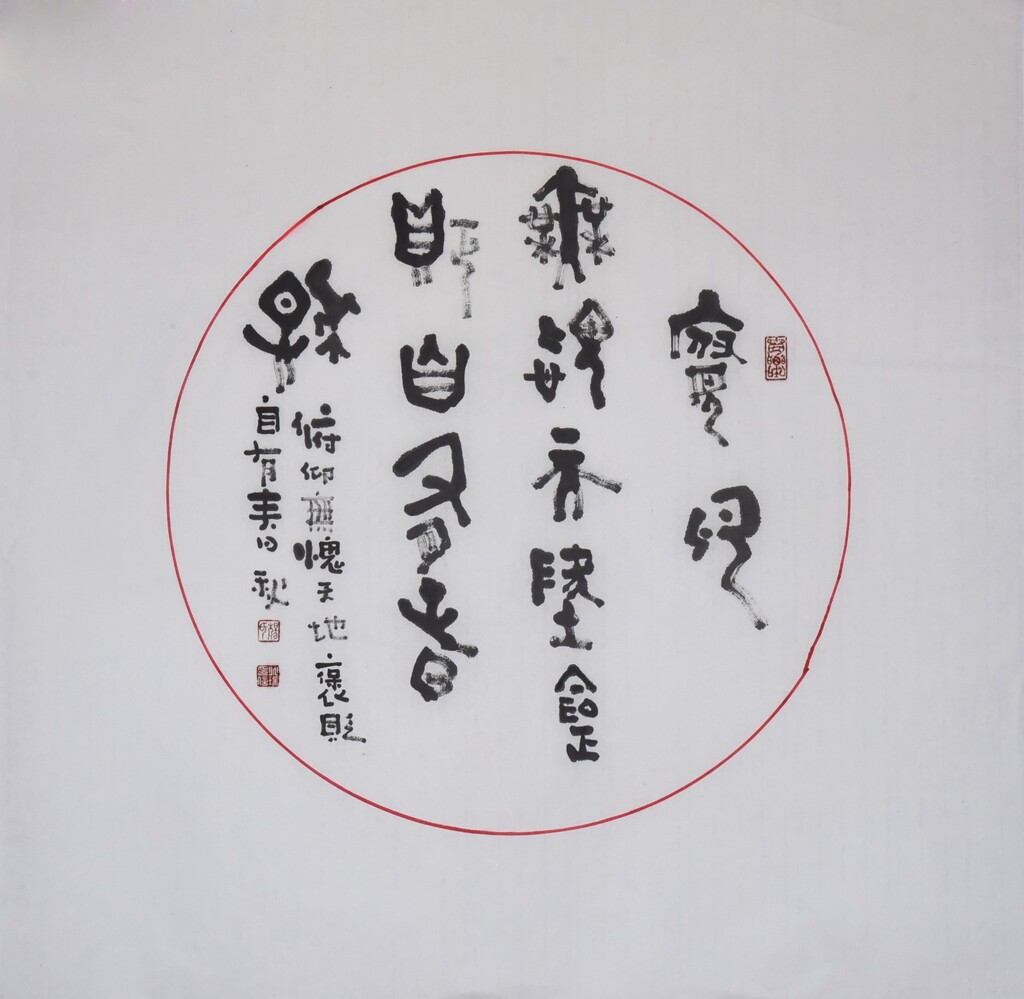 俯仰
無愧天地褒
貶自有春
秋
俯仰無愧天地褒貶
自有春秋